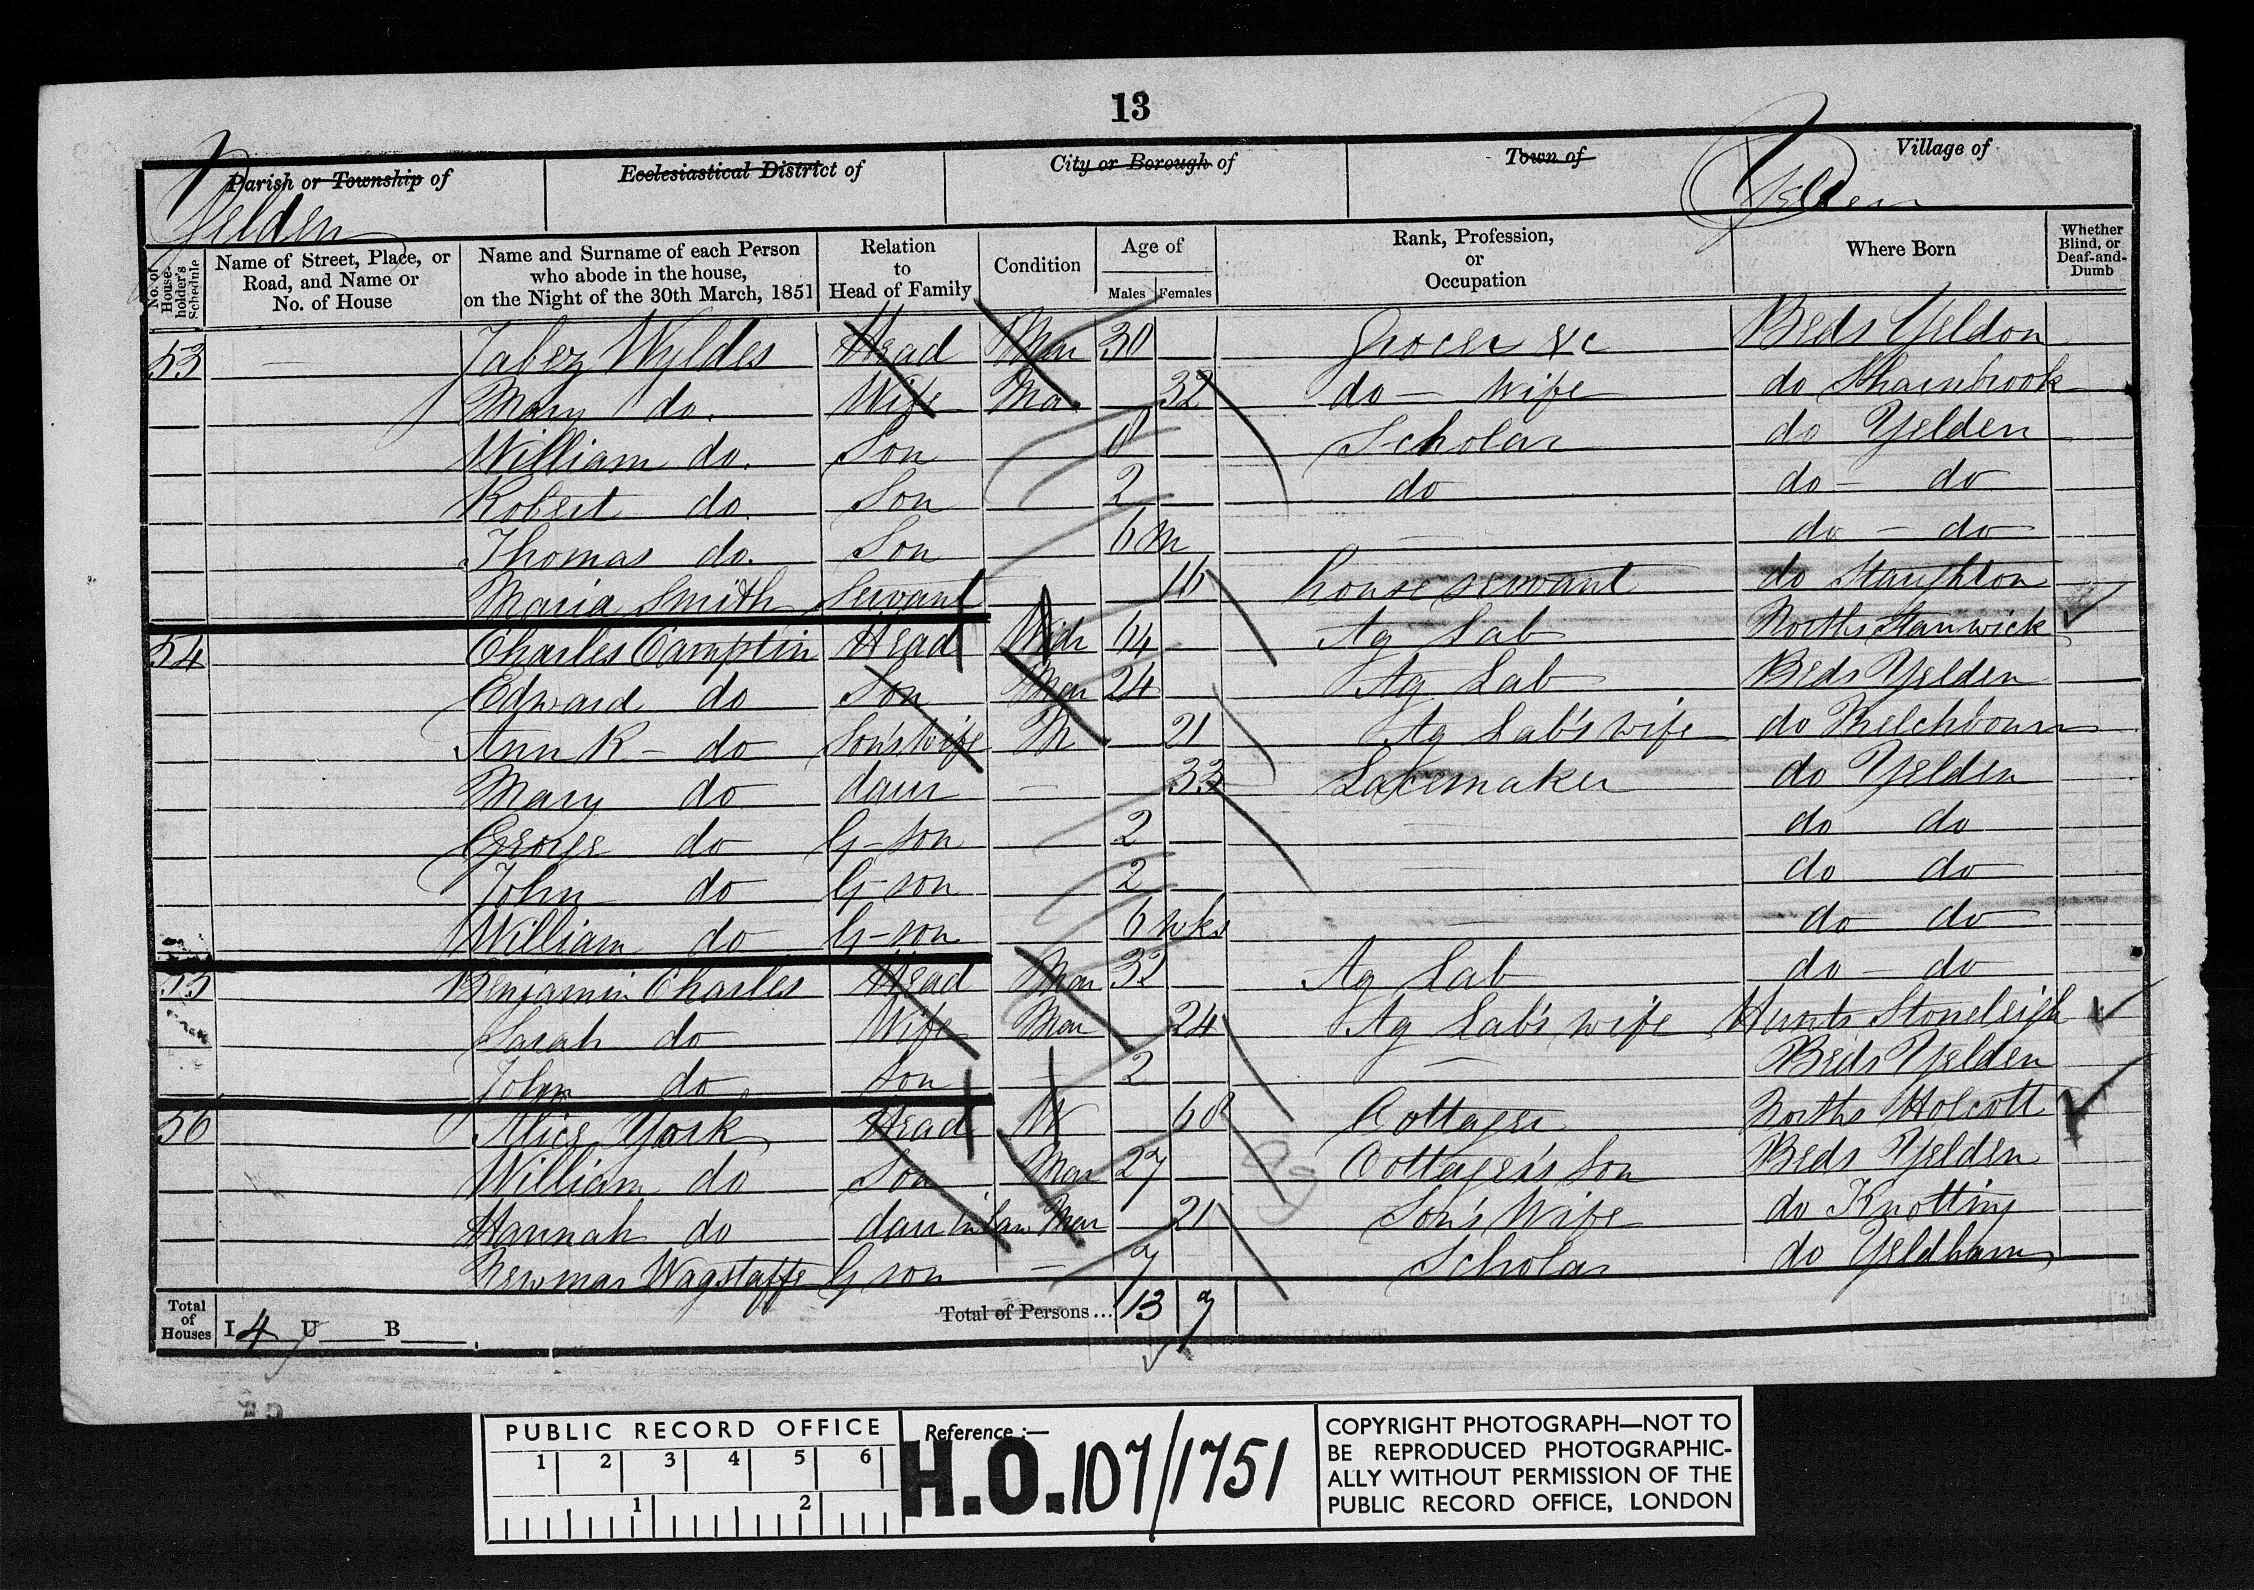 13
Parish or Township of Ecclesiastical District of City or Borough of Town of Village of
Yelden Yelden
No. of House-holder's Schedule Name of Street, Place, or Road, and Name or No. of House Name and Surname of each Person who abode in the house, on the Night of the 30th March, 1851 Relation to Head of Family Condition Age of Males Females Rank, Profession, or Occupation Where Born Whether Blind, or Deaf-and-Dumb
53 — Jabez Wyldes Head Mar 30 Grocer &c Beds Yeldon
Mary do. Wife Mar 32 do — Wife do Sharnbrook
William do. Son 8 Scholar do Yelden
Robert do. Son 2 do do - do
Thomas do. Son 6 m — do - do
Maria Smith Servant 16 house servant do Staughton
54 Charles Camptin Head Widr 64 Ag Lab Norths Stanwick
Edward do Son Mar 24 Ag Lab Beds Yelden
Ann K - do Son's Wife M 21 Ag Lab's wife do Melchbourn
Mary do daur — 33 Lacemaker do Yelden
George do G-son 2 — do do
John do G-son 2 — do do
William do G-son 6 wks — do do
55 Benjamin Charles Head Mar 32 Ag Lab do - do
Sarah do Wife Mar 24 Ag Lab's wife Hunts Stoneleigh
John do Son — 2 — Beds Yelden
56 Alice York Head W 68 Cottager Norths Holcott
William do Son Mar 27 Cottager's Son Beds Yelden
Hannah do daur in law Mar 21 Son's Wife do Knotting
Newman Wagstaffe G son — 7 Scholar do Yeldham
Total of Houses I 4 U B Total of Persons... 13 7
PUBLIC RECORD OFFICE
1 2 3 4 5 6
1 2
Reference :—
H.O. 107/1751
COPYRIGHT PHOTOGRAPH—NOT TO
BE REPRODUCED PHOTOGRAPHIC-
ALLY WITHOUT PERMISSION OF THE
PUBLIC RECORD OFFICE, LONDON